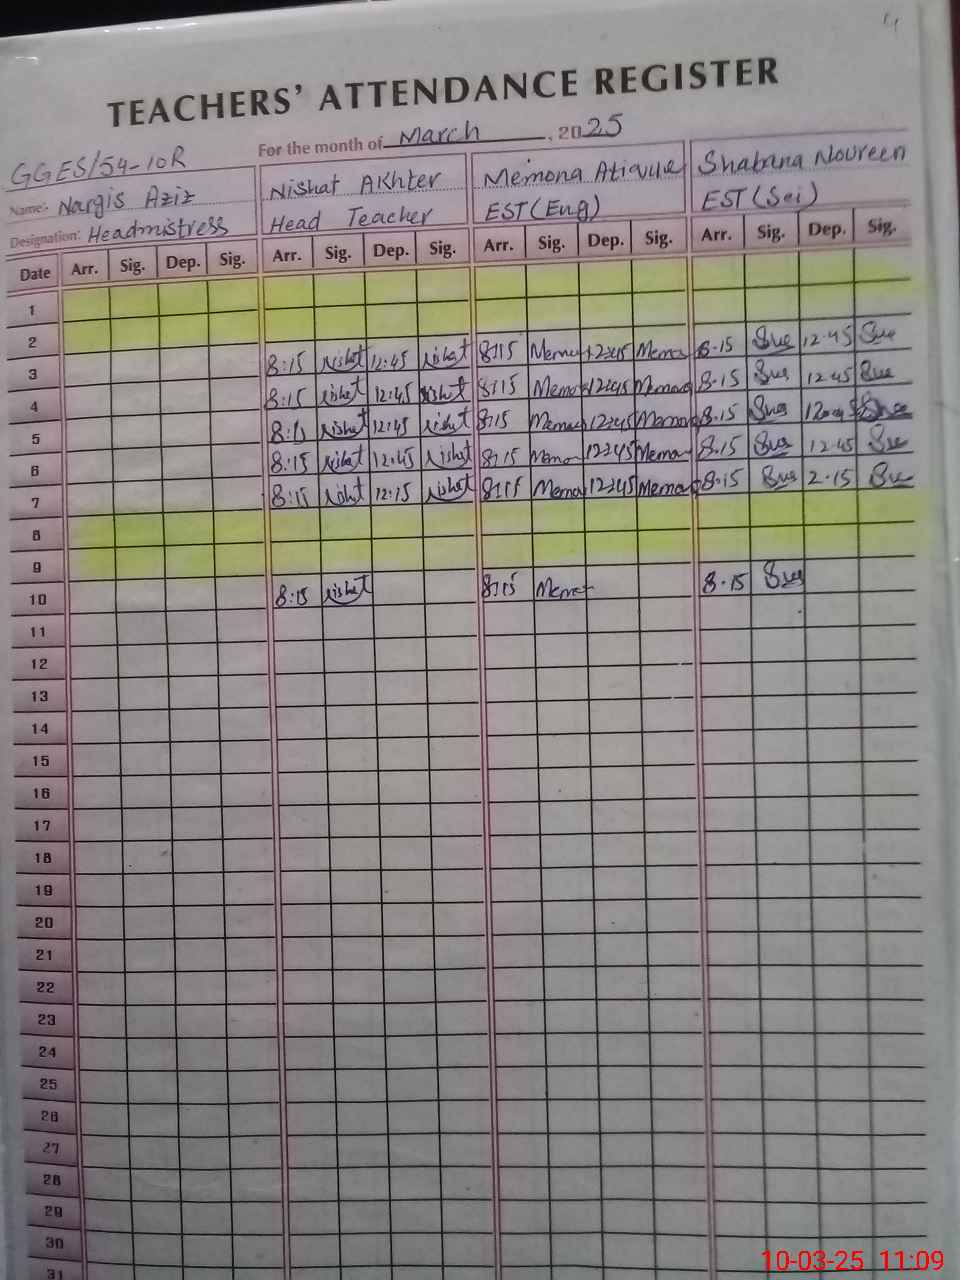 TEACHERS' ATTENDANCE REGISTER
For the month of March, 2025
GGES/54-10R
Name:- Nargis Aziz Nishat Akhter Memona Atiquie Shabana Noureen
Designation: Headmistress Head Teacher EST(Eng) EST(Sci)
Date Arr. Sig. Dep. Sig. Arr. Sig. Dep. Sig. Arr. Sig. Dep. Sig. Arr. Sig. Dep. Sig.
1
2
3 8:15 Nishat 12:45 Nishat 8:15 Memona 12:45 Memona 8.15 12.45
4 8:15 Nishat 12:45 Nishat 8:15 Memona 12:45 Memona 8.15 12.45
5 8:15 Nishat 12:45 Nishat 8:15 Memona 12:45 Memona 8.15
6 8:15 Nishat 12:45 Nishat 8:15 Memona 12:45 Memona 8.15 12.45
7 8:15 Nishat 12:15 Nishat 8:15 Memona 12:45 Memona 8.15 2.15
8
9
10 8:15 Nishat 8:15 Memona 8.15
11
12
13
14
15
16
17
18
19
20
21
22
23
24
25
26
27
28
29
30
31
10-03-25 11:09